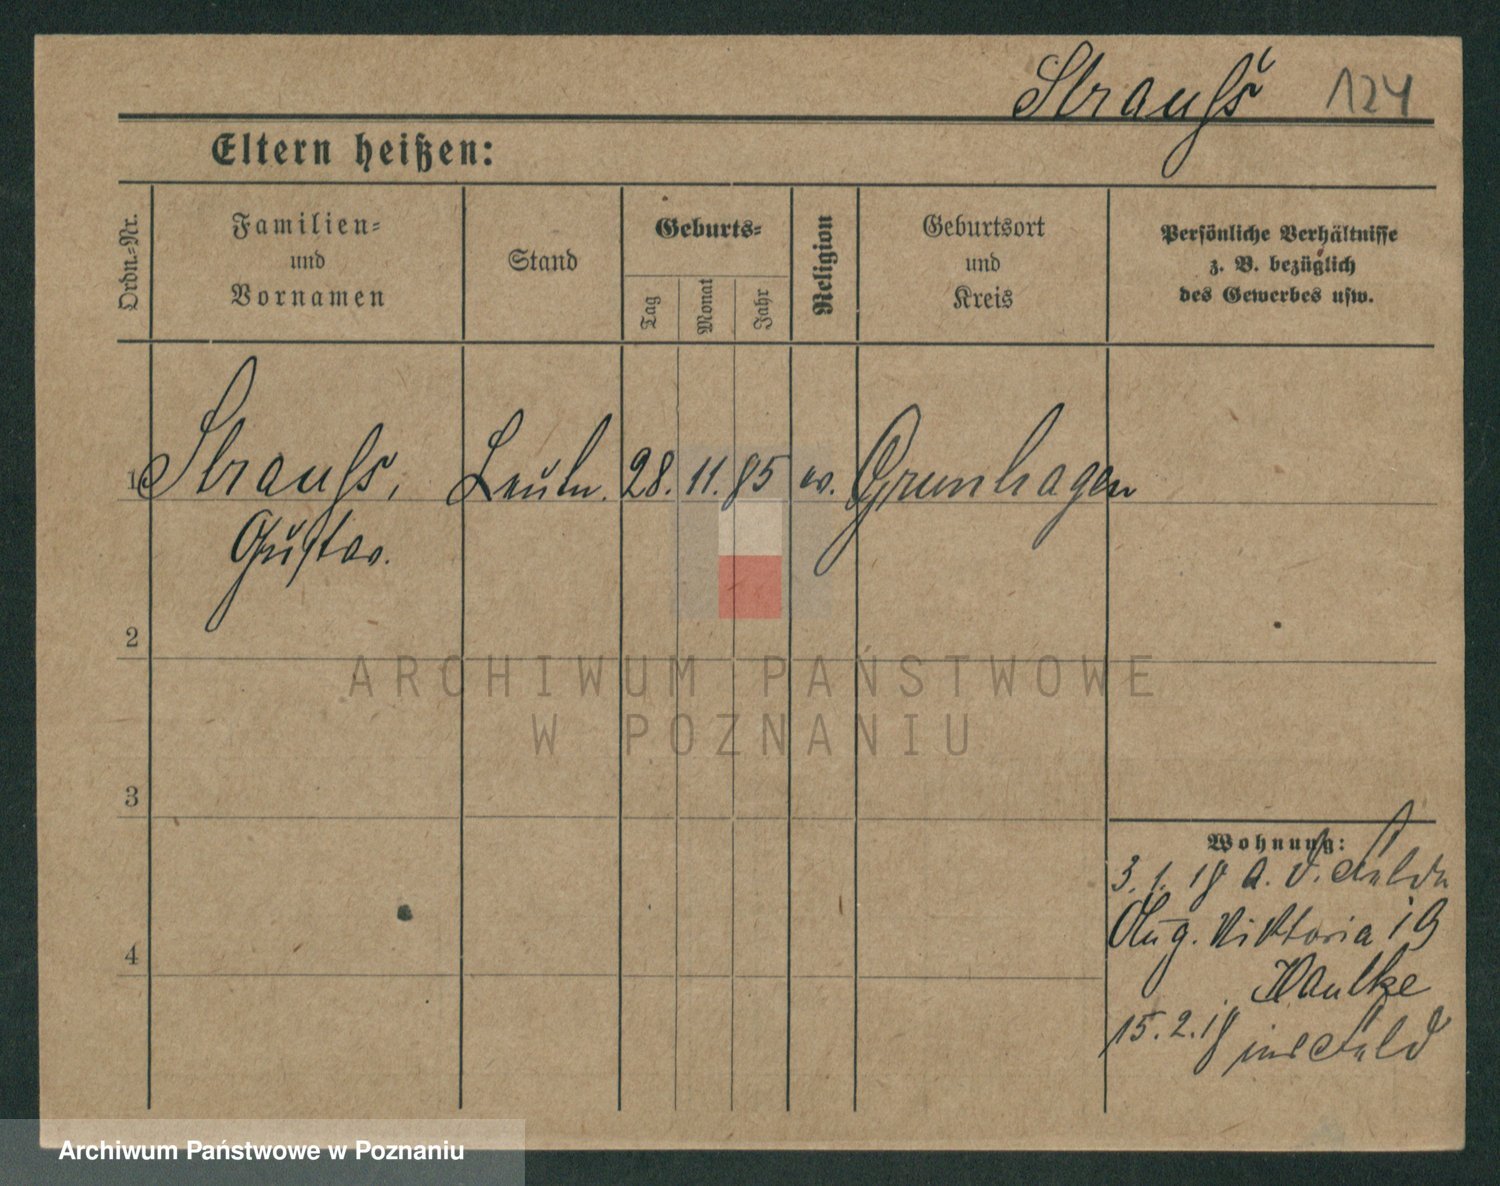 Strauß 124
Eltern heißen:
Ordn.-Nr.
Familien-
und
Vornamen
Stand
Geburts-
Tag
Monat
Jahr
Religion
Geburtsort
und
Kreis
Persönliche Verhältnisse
z. B. bezüglich
des Gewerbes usw.
1 Strauß, Leutn. 28. 11. 85 ev. Grunhagen
Gustav.
2
3
4
Wohnung:
3. 1. 18 a. d. Felde
Aug. Viktoria 19
15. 2. 18 ins Feld
ARCHIWUM PAŃSTWOWE
W POZNANIU
Archiwum Państwowe w Poznaniu